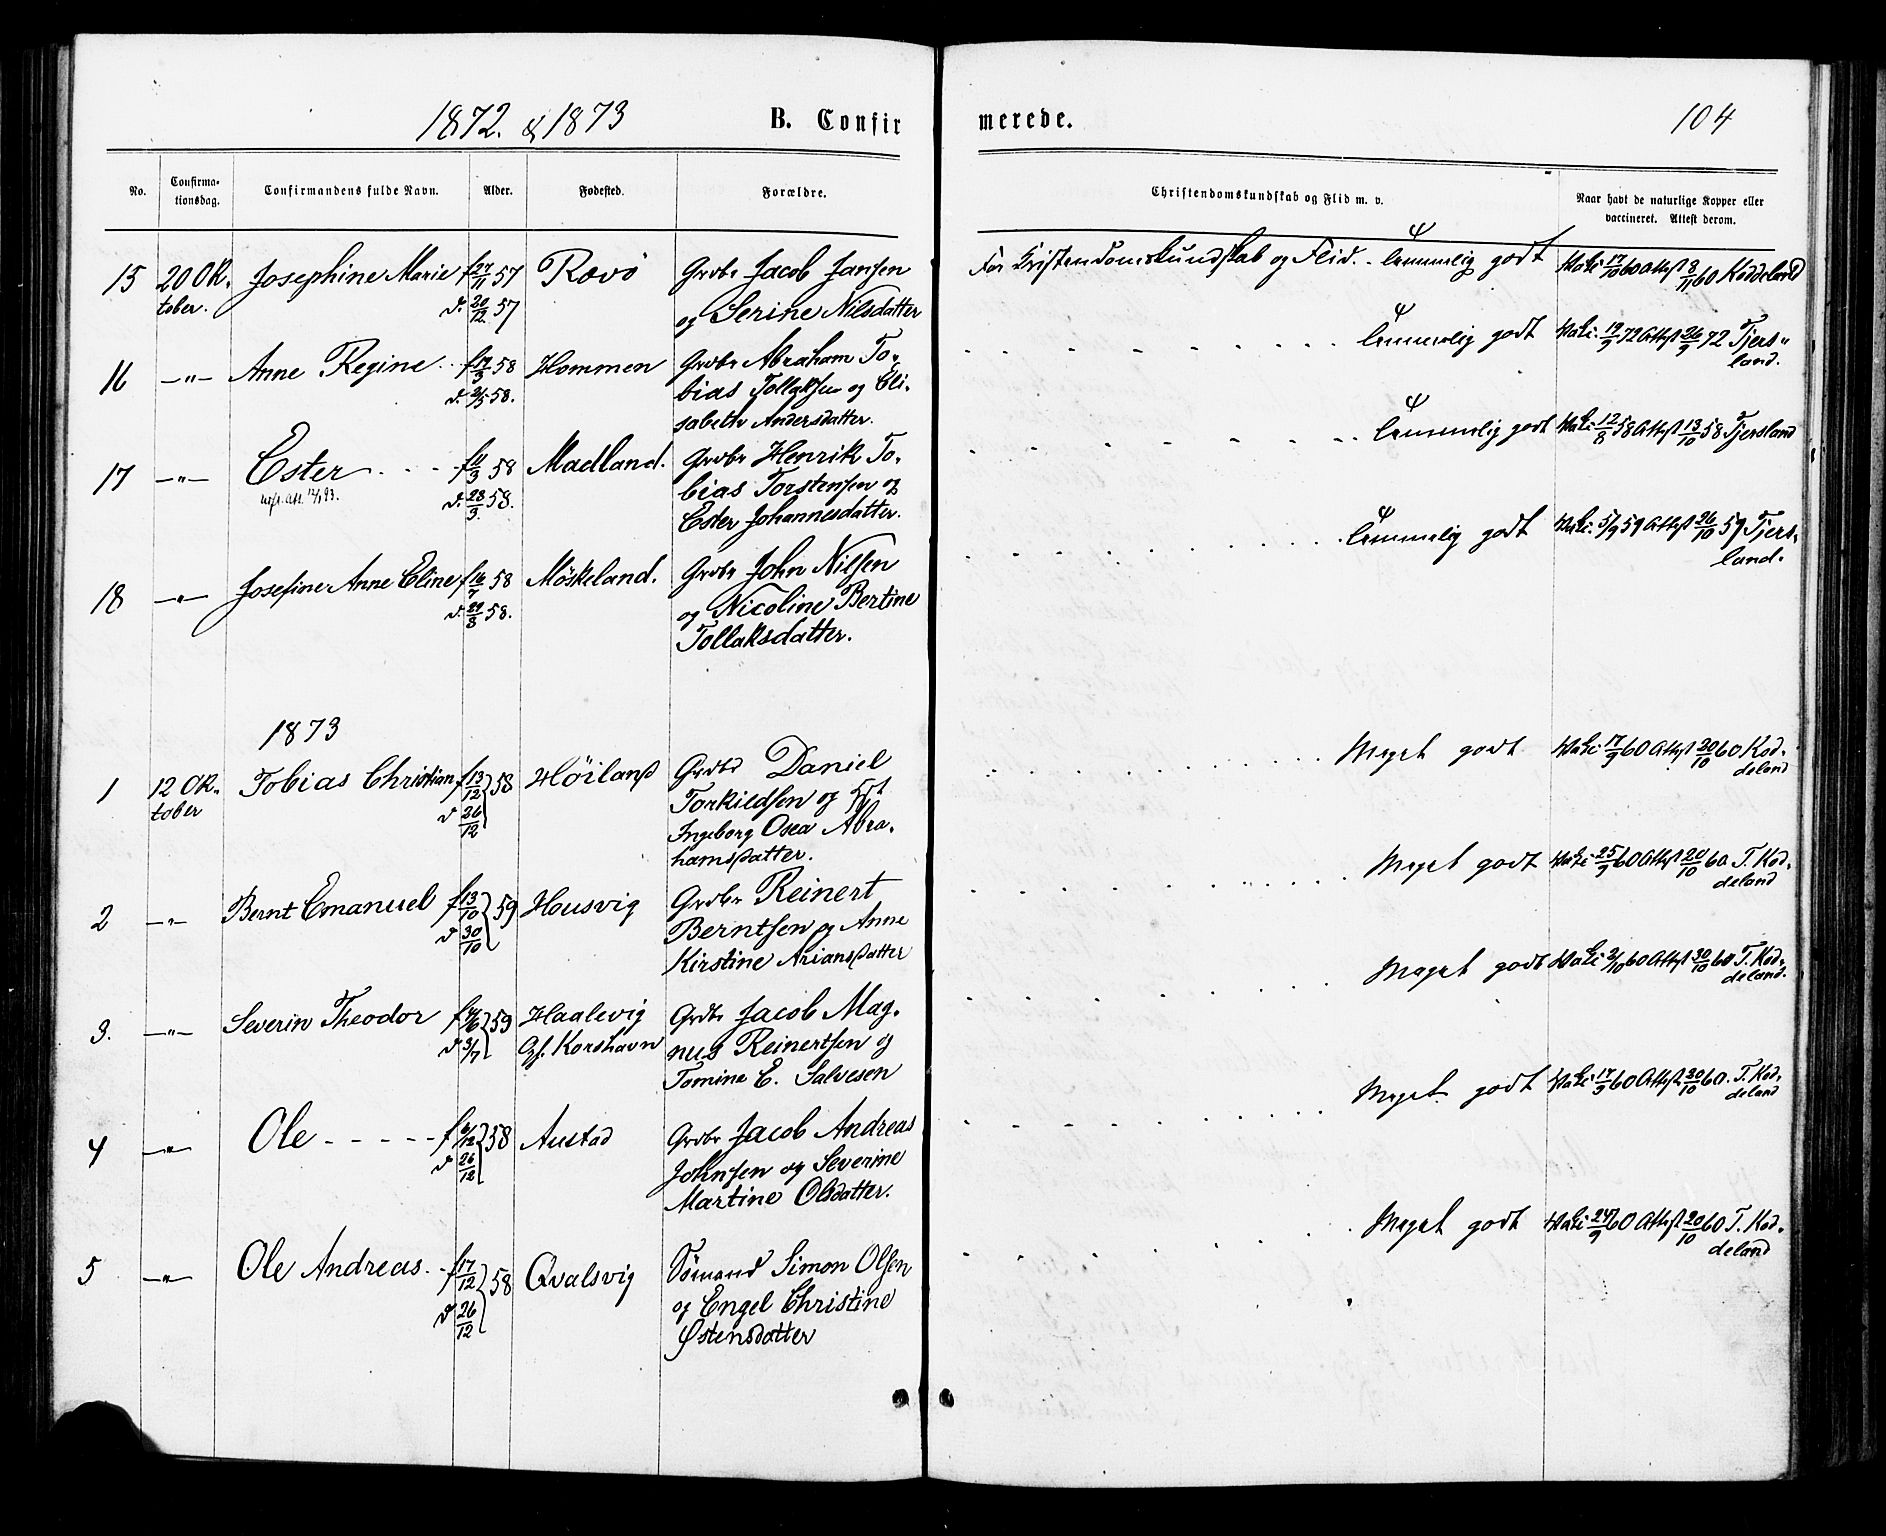 1872. & 1873 B. Confirmerede. 104
No. Confirma-tionsdag. Confirmandens fulde Navn. Alder. Fødested. Forældre. Christendomskundskab og Flid m. v. Naar havt de naturlige Kopper eller vaccineret. Attest derom.
15 20 Ok- Josephine Marie f 27/11 57 Rævø Grdbr Jacob Jansen For Kristendomskundskab og Flid. . temmelig godt Vakc. 17/10 60 Attest 8/11 60 Koddeland
tober. d. 20/12 57 og Serine Nilsdatter
16 —"— Anne Regine f 17/3 58 Hommen Grdbr Abraham To- temmelig godt Vakc. 19/9 72 Attest 26/9 72 Tjers-
d. 2/5 58. bias Tollaksen og Eli- land.
sabeth Andersdatter.
17 —"— Ester f 11/3 58 Madland. Grdbr Henrik To- temmelig godt Vakc. 12/8 58 Attest 13/10 58 Tjersland
d. 28/3 58. bias Torstensen og
Ester Johannesdatter.
18 —"— Josefine Anne Eline f 16/7 58 Möskeland. Grdbr John Nilsen temmelig godt Vakc. 5/9 59 Attest 26/10 59 Tjers-
d. 29/8 58. og Nicoline Bertine land.
Tollaksdatter.
1873
1 12 Ok- Tobias Christian f 13/12 58 Höiland Grdbr Daniel Meget godt Vakc. 17/9 60 Attest 20/10 60 Kod-
tober d 26/12 Torkildsen og deland
Ingeborg Osea Abra-
hamsdatter.
2 —"— Bernt Emanuel f 13/10 59 Housvig Grdbr Reinert Meget godt Vakc 25/9 60 Attest 20/10 60 T. Kod-
d 30/10 Berntsen og Anne deland
Kirstine Ariansdatter
3. —"— Severin Theodor 59 Haalevig Grdbr Jacob Mag- Meget godt Vakc 2/10 60 Attest 30/10 60 T. Kod-
d 3/7 Korshavn nus Reinertsen og deland.
Tomine E. Salvesen
4 —"— Ole f 6/12 58 Austad Grdbr Jacob Andreas Meget godt Vakc 17/9 60 Attest 20/10 60. T. Kod-
d 26/12 Johnsen og Severine deland
Martine Olsdatter.
5 —"— Ole Andreas. f 17/12 58 Qvalsvig Sömand Simon Olsen Meget godt Vakc 24/9 60 Attest 20/10 60 T. Kod-
d 26/12 og Engel Christine deland
Østensdatter